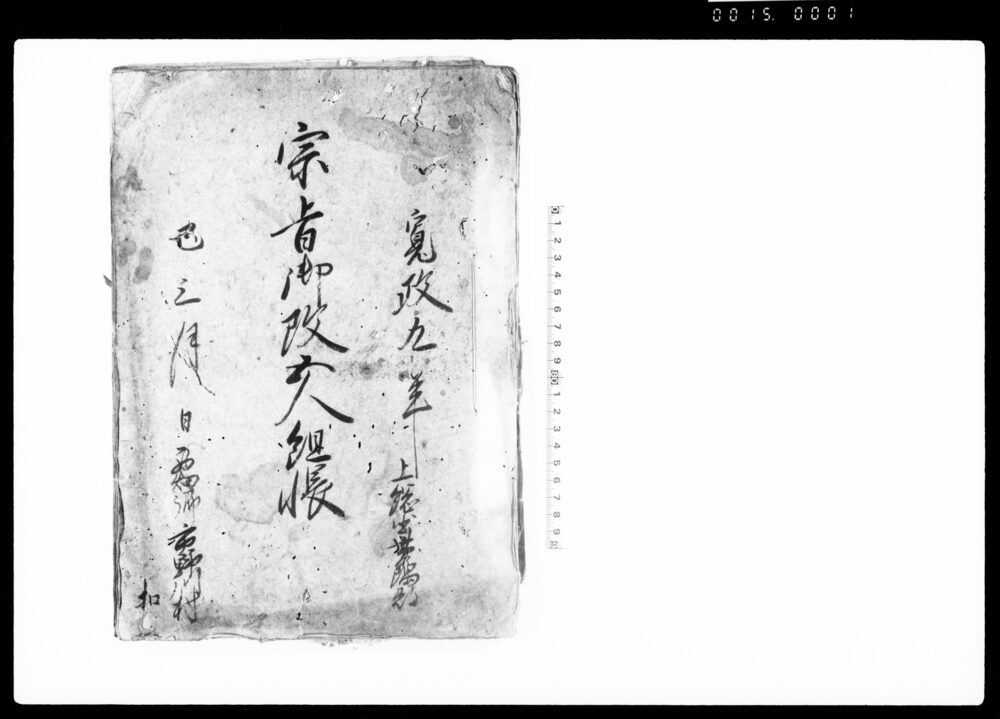 0015. 0001
寛政九年
上総国長柄郡
宗旨御改五人組帳
巳三月 日
市野々村
扣
0 1 2 3 4 5 6 7 8 9 10 1 2 3 4 5 6 7 8 9 20